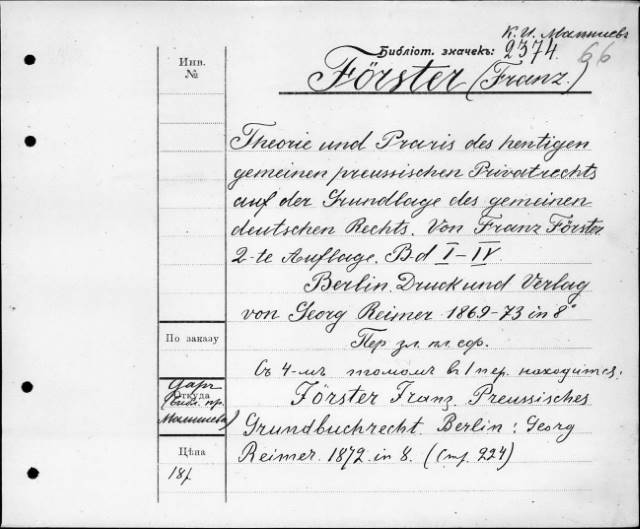 К. И. Малышевъ
Библіот. значекъ: 2374
66
Förster (Franz.)
Инв.
№
Theorie und Praxis des heutigen
gemeinen preussischen Privatrechts
auf der Grundlage des gemeinen
deutschen Rechts. Von Franz Förster
2-te Auflage. Bd I–IV.
Berlin. Druck und Verlag
von Georg Reimer 1869-73 in 8°
Пер. зл. пл. сфр.
Съ 4-мъ томомъ въ 1 пер. находится:
Förster Franz. Preussisches
Grundbuchrecht. Berlin: Georg
Reimer. 1872. in 8. (стр. 224)
По заказу
Откуда
Даръ
(библ. пр.
Малышева)
Цѣна
18 f.